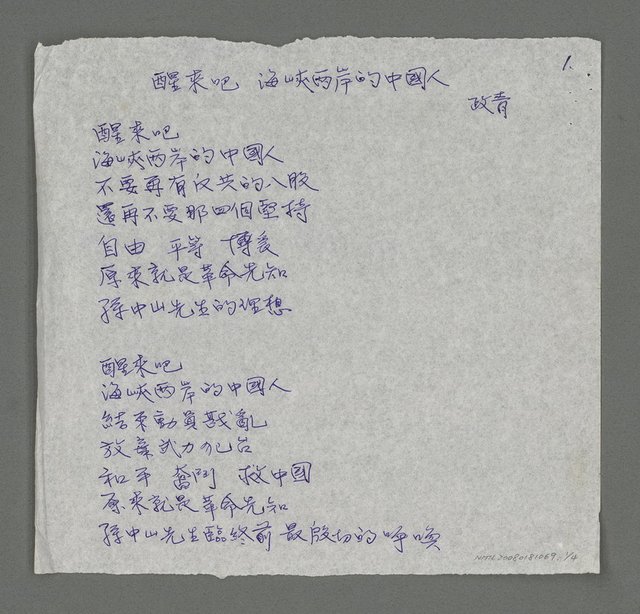 1.
醒來吧 海峽两岸的中國人
政青
醒來吧
海峽两岸的中國人
不要再有反共的八股
還再不要那四個堅持
自由 平等 博爱
原來就是革命先知
孫中山先生的理想
醒來吧
海峽两岸的中國人
結束動員戡亂
放棄武力犯台
和平 奮鬥 救中國
原來就是革命先知
孫中山先生臨終前最殷切的呼喚
NMTL20080181069, 1/4